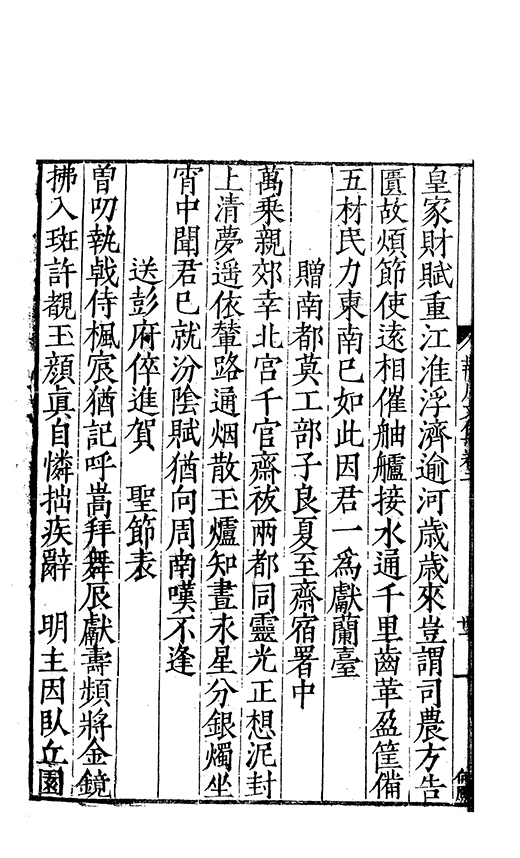 皇家財賦重江淮浮濟逾河歲歲來豈謂司農方告
匱故煩節使遠相催舳艫接水通千里齒革盈筐備
五材民力東南已如此因君一爲獻蘭臺
贈南都莫工部子良夏至齋宿署中
萬乗親郊幸北宫千官齋祓兩都同靈光正想泥封
上清夢遥依輦路通烟散玉爐知晝永星分銀燭坐
宵中聞君已就汾隂賦猶向周南嘆不逢
送彭府倅進賀 聖節表
曽叨執戟侍楓宸猶記呼嵩拜舞辰獻壽頻將金鏡
拂入班許覩玉顔眞自憐拙疾辭 明主因臥丘園